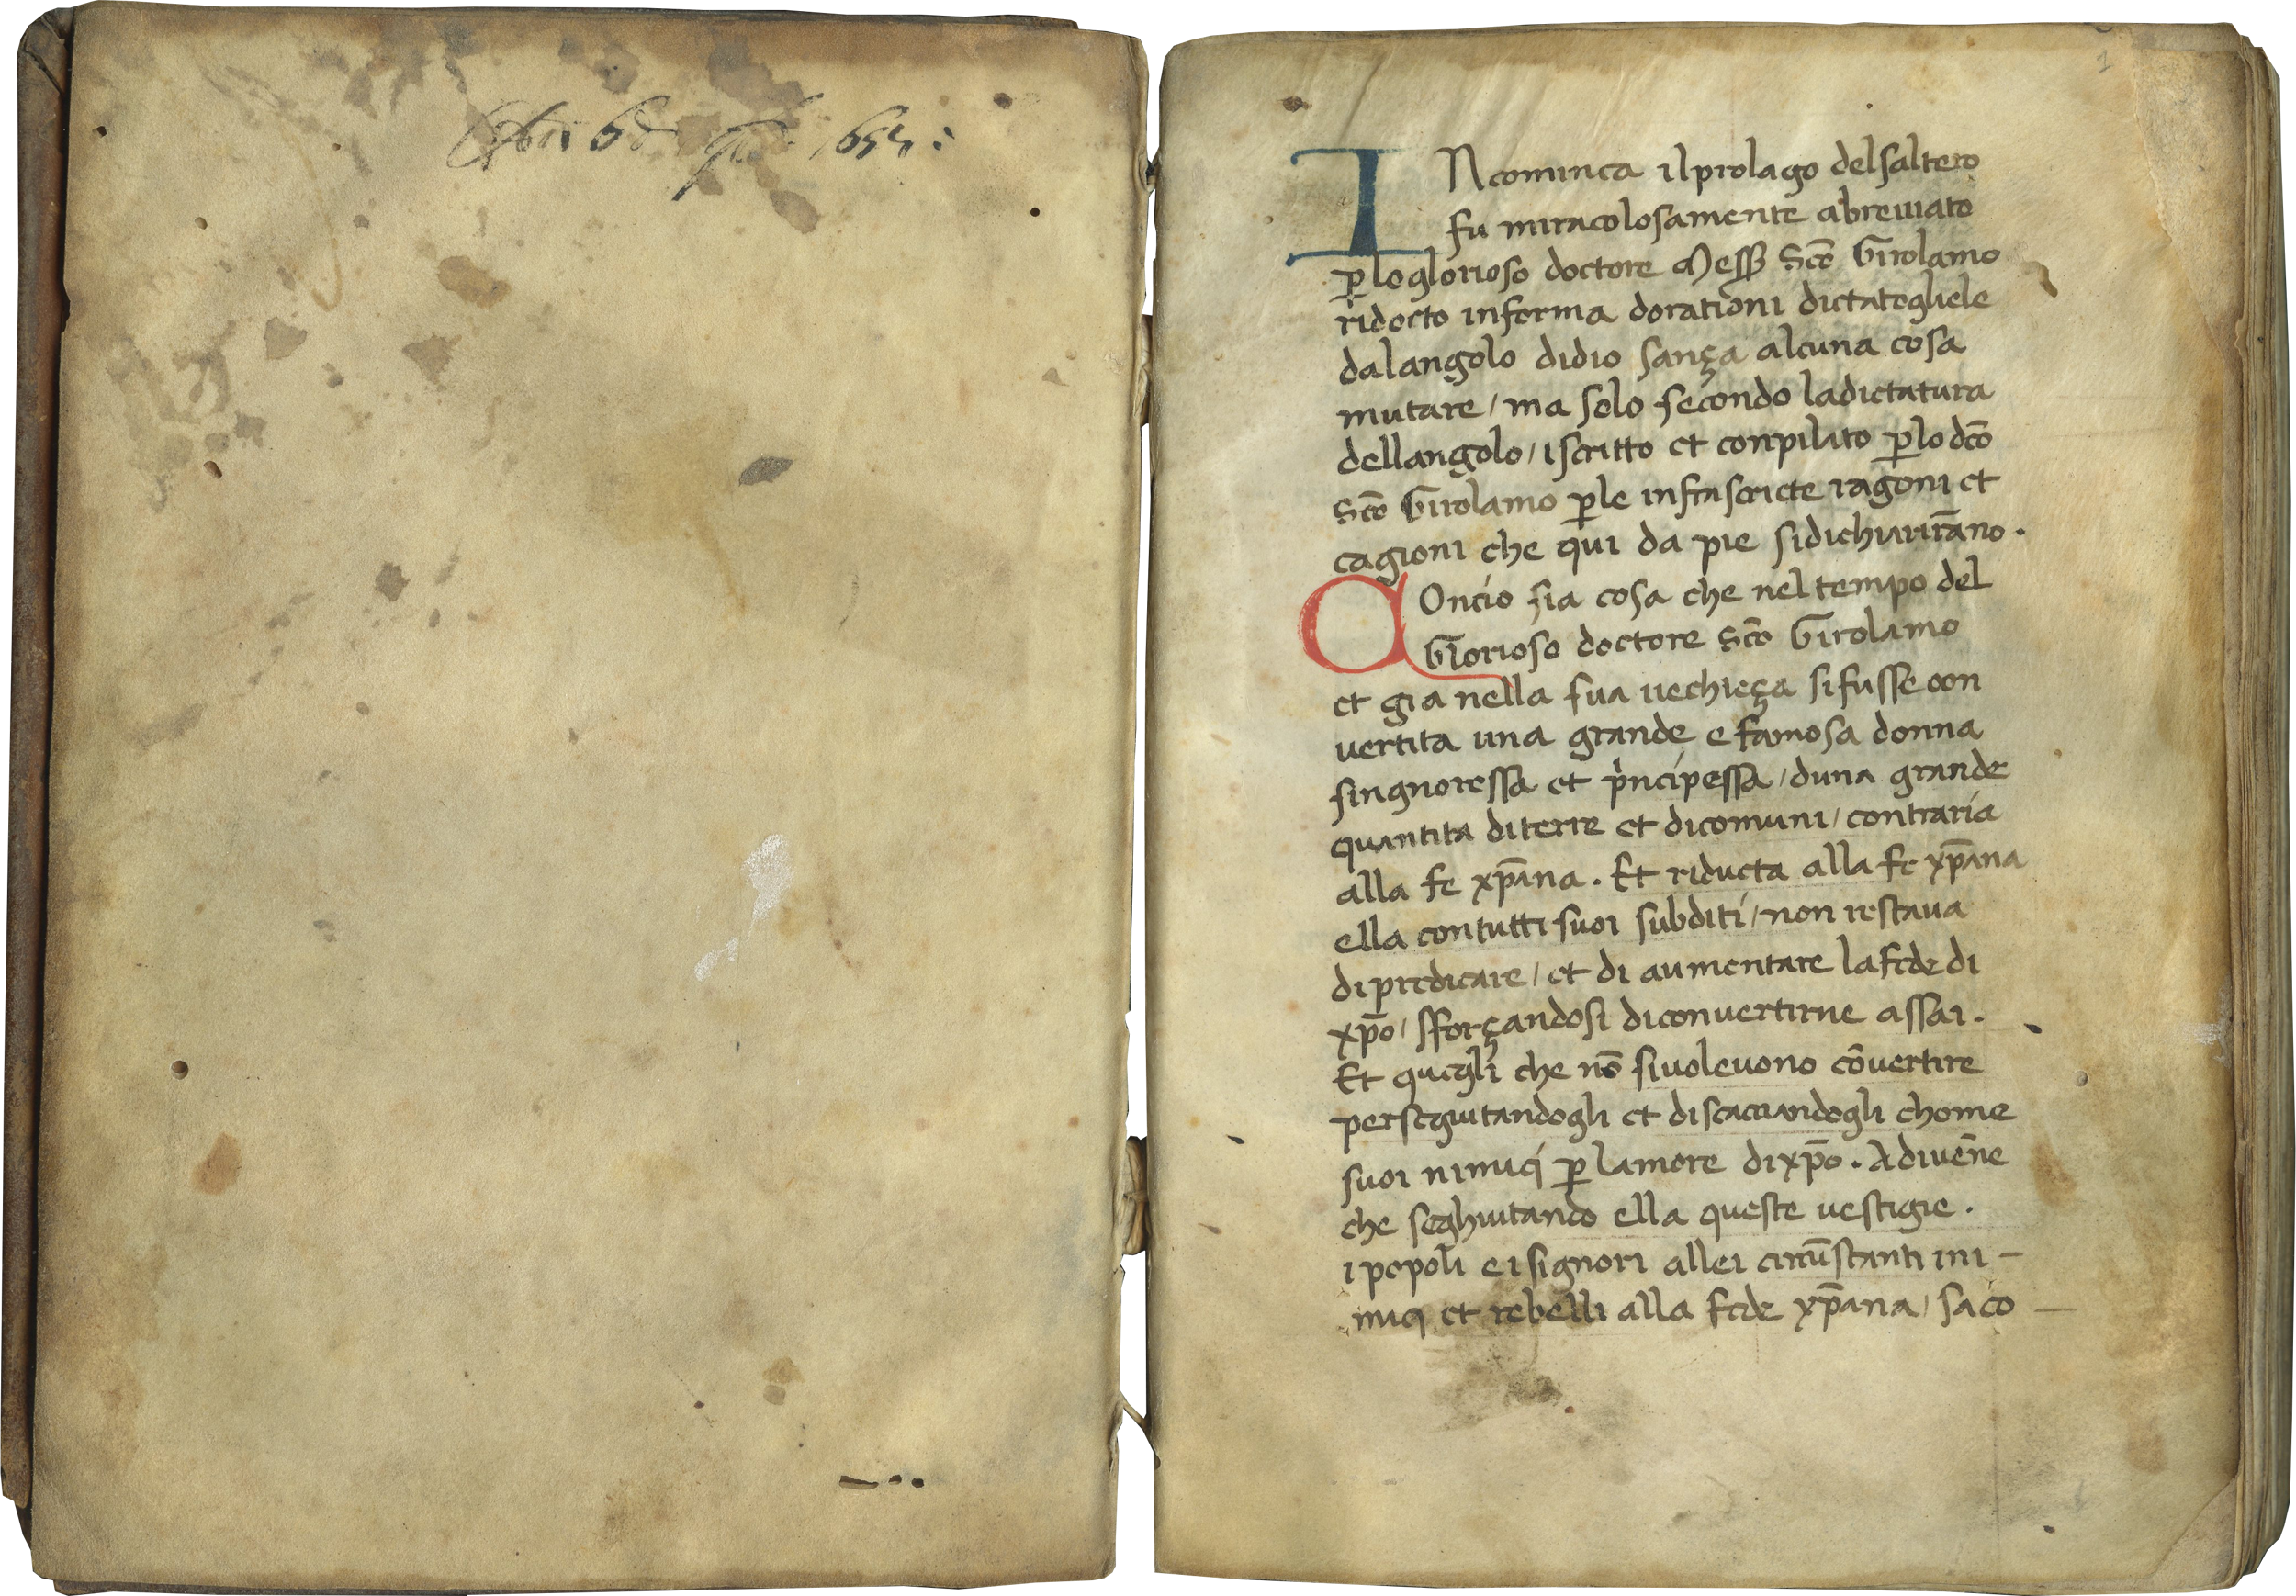 1
INcominca il prolago del saltero
fu miracolosamente abreuiato
p̱ lo glorioso doctore Mess̱ Sc̄o Girolamo
ridocto in forma dorationi dictatogliele
dal angolo didio sança alcuna cosa
mutare / ma solo secondo la dictatura
dellangolo / iscritto et conpilato p̱ lo dc̄o
Sc̄o Girolamo p̱ le infrascricte ragoni et
cagioni che qui da pie si dichiarirāno .
COncio sia cosa che nel tempo del
Glorioso doctore Sc̄o Girolamo
et gia nella sua uechieça si fusse con
uertita una grande e famosa donna
singnoressa et pi̍ncipessa / duna grande
quantita di terre et di comuni / contraria
alla fe xp̄ana . Et riducta alla fe xp̄ana
ella con tutti suoi subditi / non restaua
di predicare / et di aumentare la fede di
xp̄o / sforçandosi di conuertirne assai .
Et quegli che nō si uoleuono cōuertire
perseguitandogli et discacciandogli chome
suoi nimici p̱ lamore di xp̄o . Adiuēne
che seghuitando ella queste uestigie .
i popoli e i signori allei circūstanti ini -
mici et rebelli alla fede xp̄ana / sa co